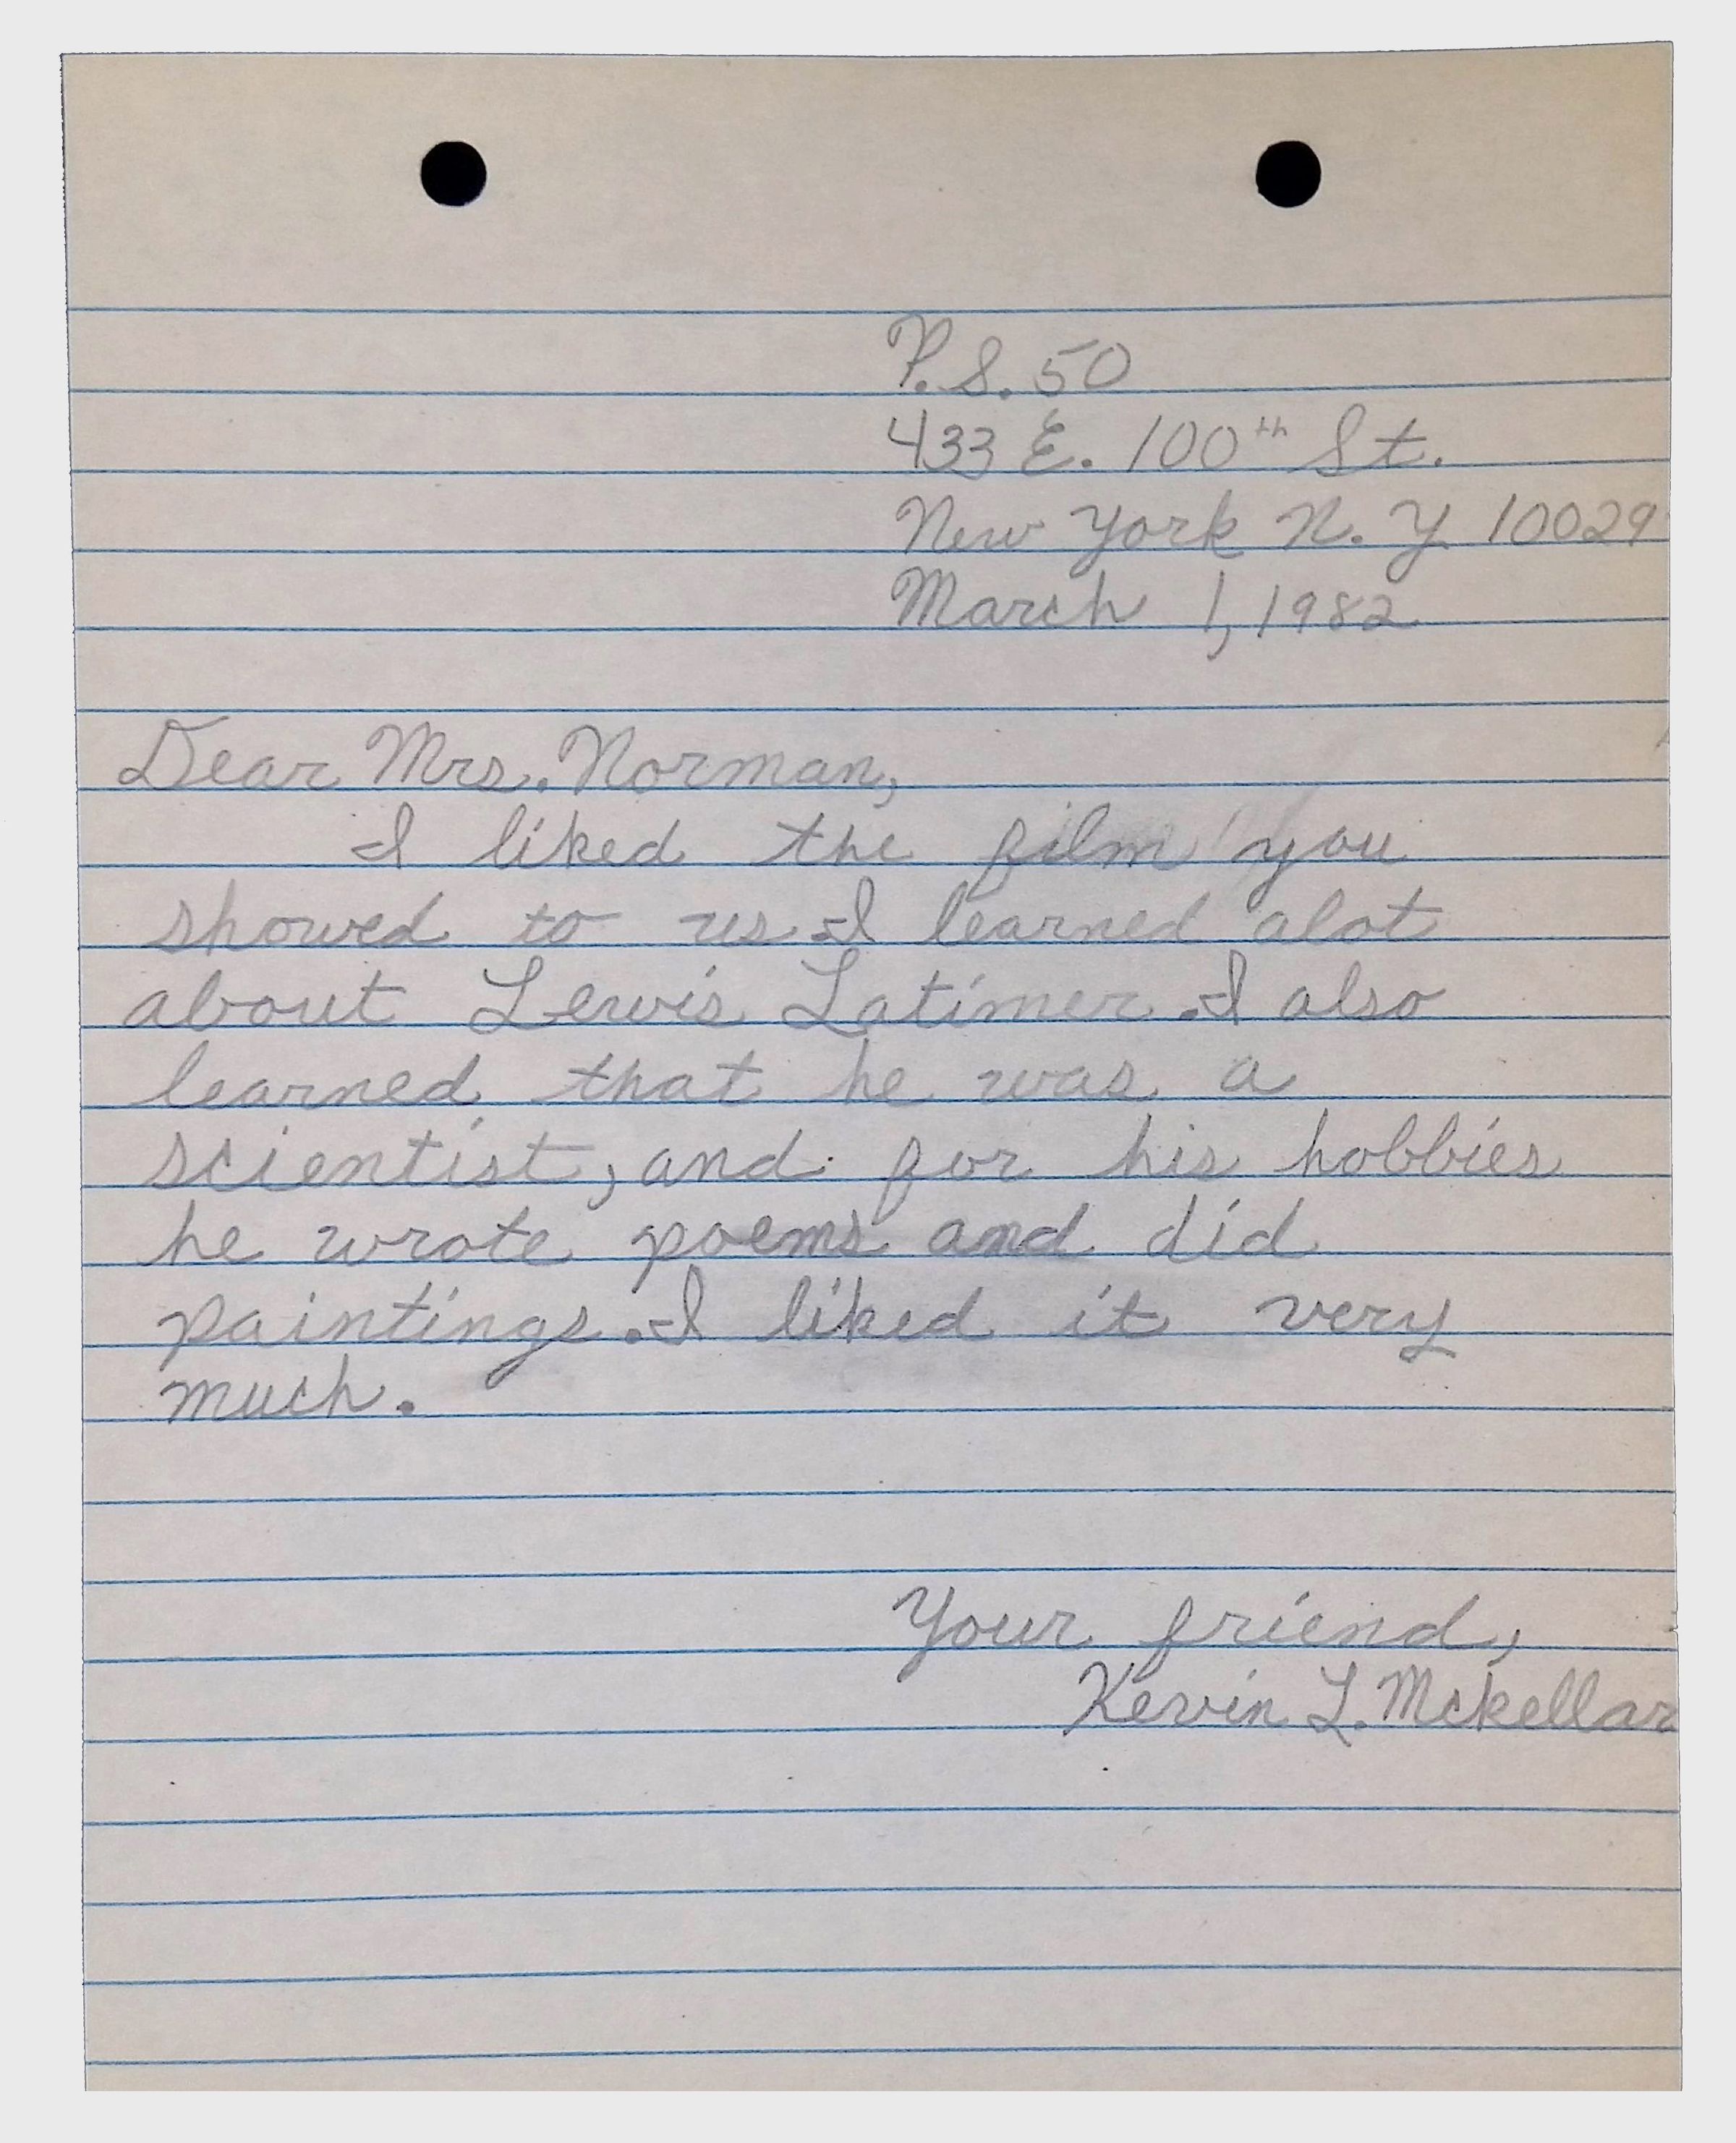 P.S. 50
433 E. 100th St.
New York N.Y 10029
March 1, 1982
Dear Mrs. Norman,
I liked the film you
showed to us. I learned alot
about Lewis Latimer. I also
learned that he was a
scientist, and for his hobbies
he wrote poems and did
paintings. I liked it very
much.
Your friend,
Kevin L. Mckellar